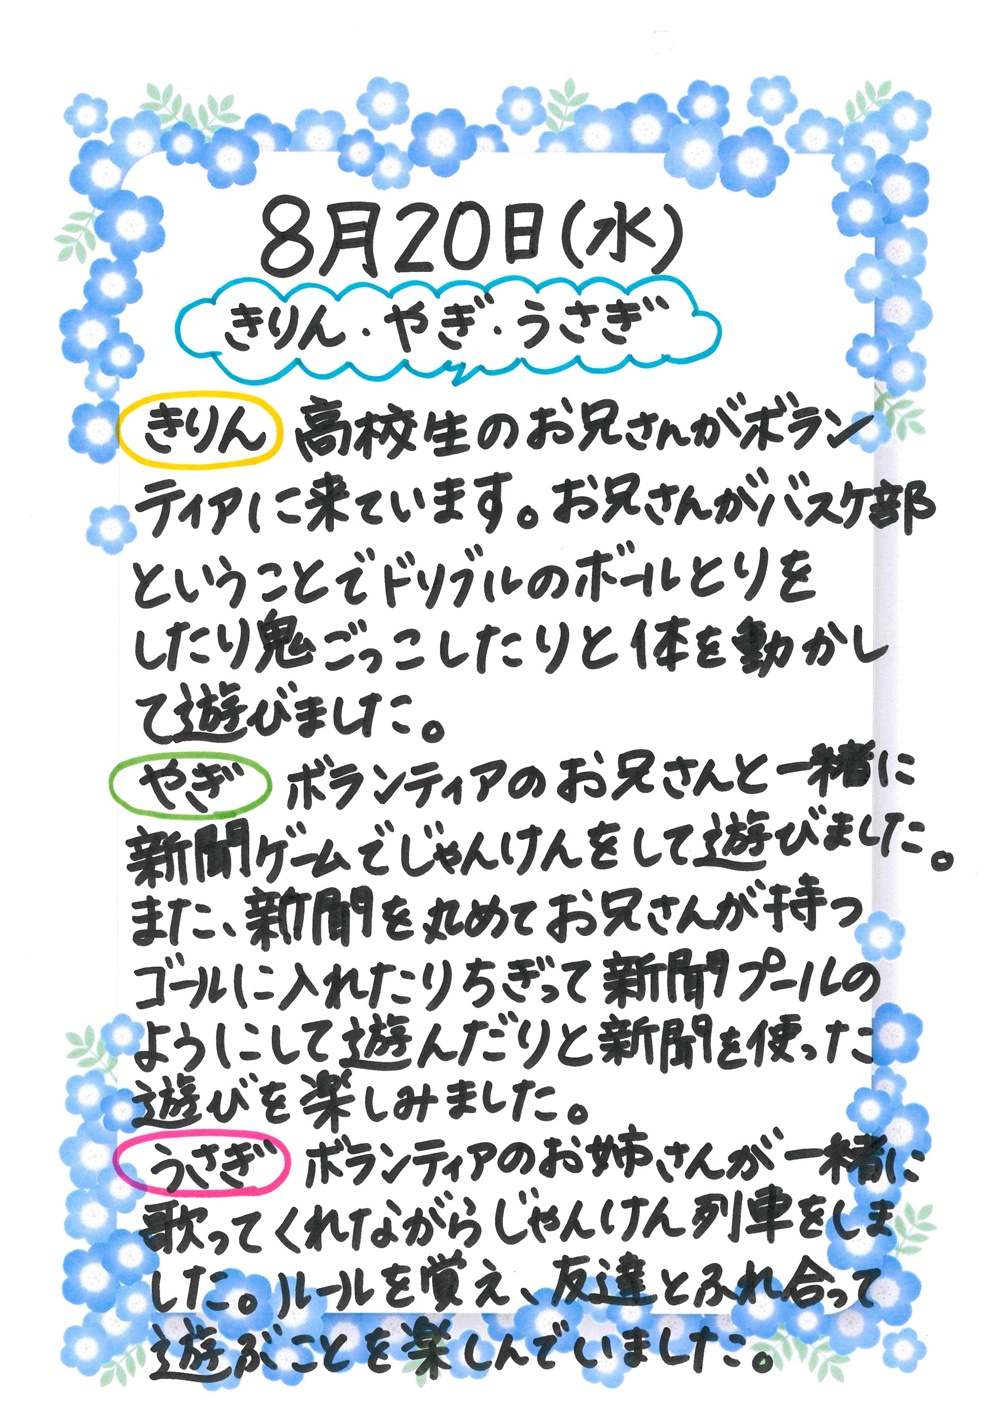 8月20日(水)
きりん・やぎ・うさぎ
きりん 高校生のお兄さんがボラン
ティアに来ています。お兄さんがバスケ部
ということでドリブルのボールとりを
したり鬼ごっこしたりと体を動かし
て遊びました。
やぎ ボランティアのお兄さんと一緒に
新聞ゲームでじゃんけんをして遊びました。
また、新聞を丸めてお兄さんが持つ
ゴールに入れたりちぎって新聞プールの
ようにして遊んだりと新聞を使った
遊びを楽しみました。
うさぎ ボランティアのお姉さんが一緒に
歌ってくれながらじゃんけん列車をしま
した。ルールを覚え、友達とふれ合って
遊ぶことを楽しんでいました。